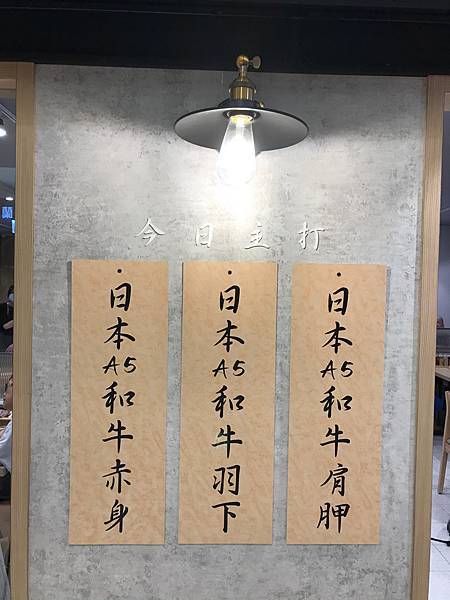 今日主打
日本A5和牛赤身
日本A5和牛羽下
日本A5和牛肩胛